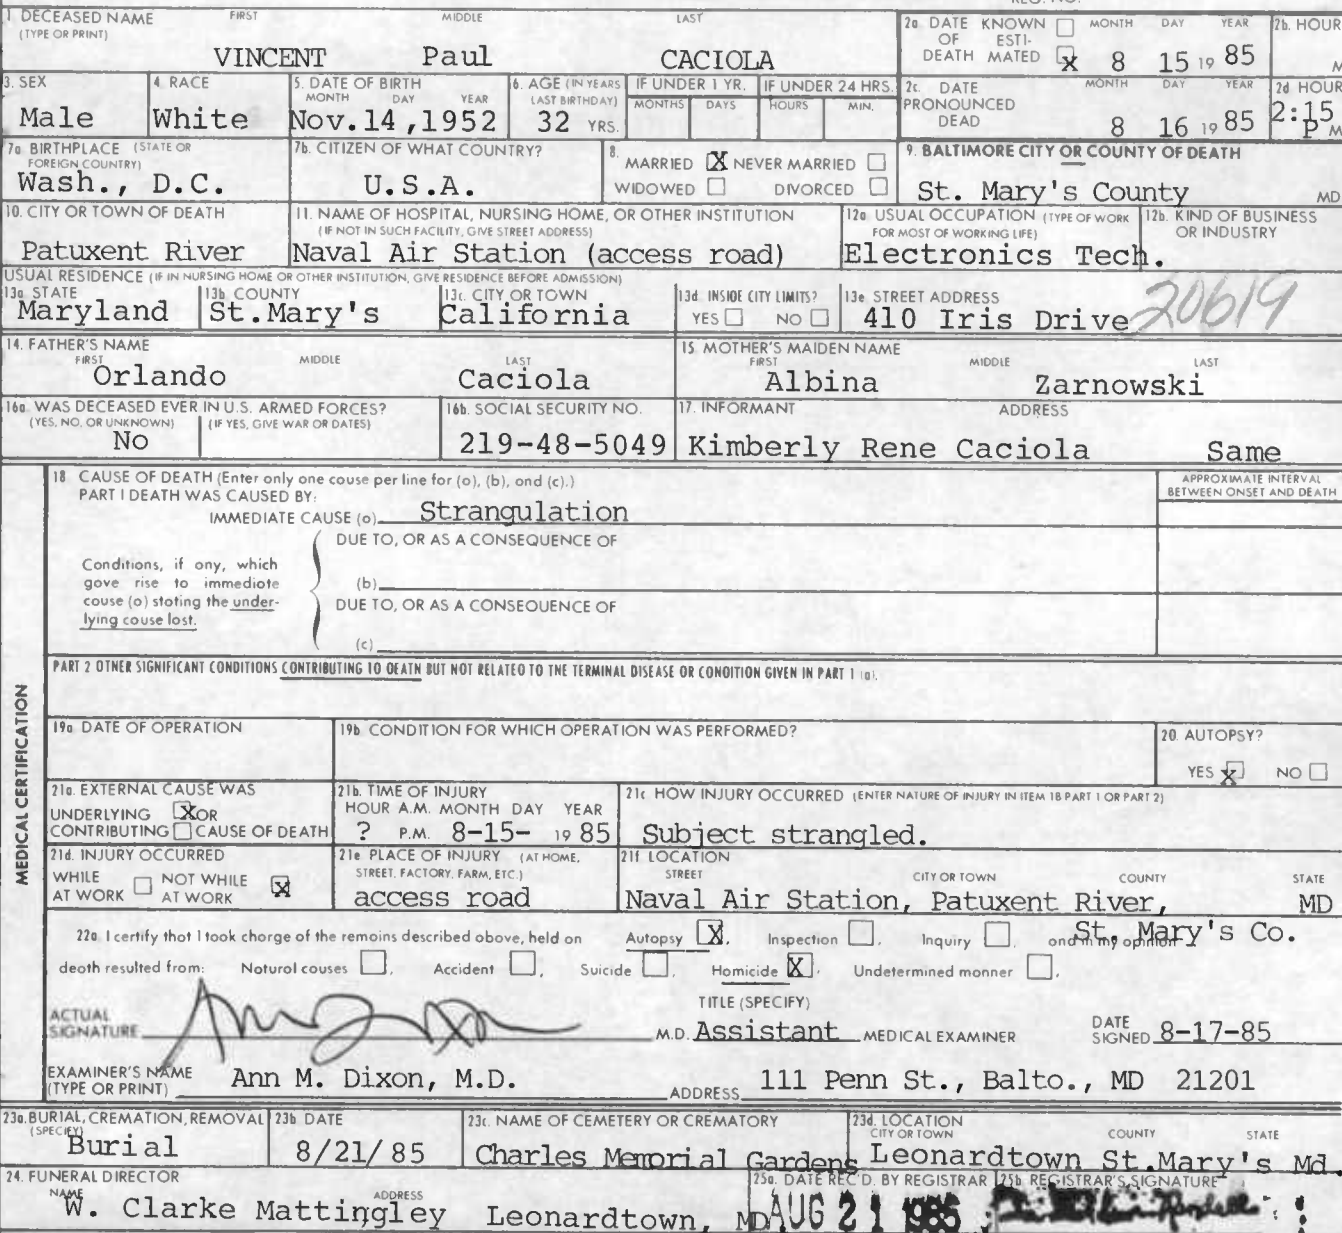 1 DECEASED NAME FIRST MIDDLE LAST
(TYPE OR PRINT)
VINCENT Paul CACIOLA
2a. DATE KNOWN MONTH DAY YEAR
OF ESTI-
DEATH MATED X 8 15 19 85
2b. HOUR
M
3. SEX
Male
4. RACE
White
5. DATE OF BIRTH
MONTH DAY YEAR
Nov. 14, 1952
6. AGE (IN YEARS
LAST BIRTHDAY)
32 YRS.
IF UNDER 1 YR.
MONTHS DAYS
IF UNDER 24 HRS.
HOURS MIN.
2c. DATE MONTH DAY YEAR
PRONOUNCED
DEAD 8 16 19 85
2d HOUR
2:15
P M
7a. BIRTHPLACE (STATE OR
FOREIGN COUNTRY)
Wash., D.C.
7b. CITIZEN OF WHAT COUNTRY?
U.S.A.
8.
MARRIED X NEVER MARRIED
WIDOWED DIVORCED
9. BALTIMORE CITY OR COUNTY OF DEATH
St. Mary's County MD
10. CITY OR TOWN OF DEATH
Patuxent River
11. NAME OF HOSPITAL, NURSING HOME, OR OTHER INSTITUTION
(IF NOT IN SUCH FACILITY, GIVE STREET ADDRESS)
Naval Air Station (access road)
12a. USUAL OCCUPATION (TYPE OF WORK
FOR MOST OF WORKING LIFE)
Electronics Tech.
12b. KIND OF BUSINESS
OR INDUSTRY
USUAL RESIDENCE (IF IN NURSING HOME OR OTHER INSTITUTION, GIVE RESIDENCE BEFORE ADMISSION)
13a STATE
Maryland
13b COUNTY
St. Mary's
13c. CITY OR TOWN
California
13d. INSIDE CITY LIMITS?
YES NO
13e STREET ADDRESS
410 Iris Drive 20619
14. FATHER'S NAME
FIRST MIDDLE LAST
Orlando Caciola
15. MOTHER'S MAIDEN NAME
FIRST MIDDLE LAST
Albina Zarnowski
16a. WAS DECEASED EVER IN U.S. ARMED FORCES?
(YES, NO, OR UNKNOWN) (IF YES, GIVE WAR OR DATES)
No
16b. SOCIAL SECURITY NO.
219-48-5049
17. INFORMANT ADDRESS
Kimberly Rene Caciola Same
MEDICAL CERTIFICATION
18 CAUSE OF DEATH (Enter only one couse per line for (o), (b), ond (c).)
PART I DEATH WAS CAUSED BY:
IMMEDIATE CAUSE (o) Strangulation
APPROXIMATE INTERVAL
BETWEEN ONSET AND DEATH
DUE TO, OR AS A CONSEQUENCE OF
Conditions, if ony, which
gove rise to immediote
couse (o) stoting the under-
lying couse lost.
(b)
DUE TO, OR AS A CONSEOUENCE OF
(c)
PART 2 OTHER SIGNIFICANT CONDITIONS CONTRIBUTING TO DEATH BUT NOT RELATED TO THE TERMINAL DISEASE OR CONDITION GIVEN IN PART 1 (a).
19a. DATE OF OPERATION
19b. CONDITION FOR WHICH OPERATION WAS PERFORMED?
20. AUTOPSY?
YES X NO
21a. EXTERNAL CAUSE WAS
UNDERLYING X OR
CONTRIBUTING CAUSE OF DEATH
21b. TIME OF INJURY
HOUR A.M. MONTH DAY YEAR
? P.M. 8-15- 19 85
21c HOW INJURY OCCURRED (ENTER NATURE OF INJURY IN ITEM 18 PART 1 OR PART 2)
Subject strangled.
21d. INJURY OCCURRED
WHILE NOT WHILE
AT WORK AT WORK X
21e PLACE OF INJURY (AT HOME,
STREET, FACTORY, FARM, ETC.)
access road
21f LOCATION
STREET CITY OR TOWN COUNTY STATE
Naval Air Station, Patuxent River, MD
St. Mary's Co.
22a. I certify thot I took chorge of the remoins described obove, held on Autopsy X, Inspection, Inquiry, ond in my opinion
deoth resulted from: Noturol couses, Accident, Suicide, Homicide X, Undetermined monner.
ACTUAL
SIGNATURE
TITLE (SPECIFY)
M.D. Assistant MEDICAL EXAMINER
DATE
SIGNED 8-17-85
EXAMINER'S NAME
(TYPE OR PRINT) Ann M. Dixon, M.D.
ADDRESS 111 Penn St., Balto., MD 21201
23a. BURIAL, CREMATION, REMOVAL
(SPECIFY)
Burial
23b DATE
8/21/85
23c. NAME OF CEMETERY OR CREMATORY
Charles Memorial Gardens
23d. LOCATION
CITY OR TOWN COUNTY STATE
Leonardtown St. Mary's Md.
24. FUNERAL DIRECTOR
NAME ADDRESS
W. Clarke Mattingley Leonardtown, MD
25a. DATE REC'D. BY REGISTRAR
AUG 21 1985
25b REGISTRAR'S SIGNATURE